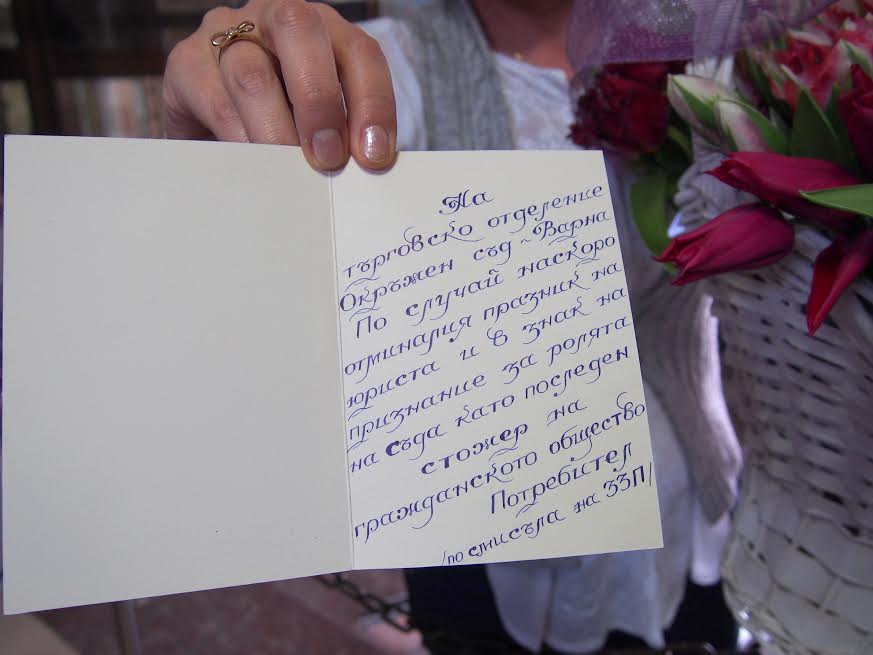 На
търговско отделение
Окръжен съд - Варна
По случай наскоро
отминалия празник на
юриста и в знак на
признание за ролята
на съда като последен
стожер на
гражданското общество
Потребител
/по смисъла на ЗЗП/